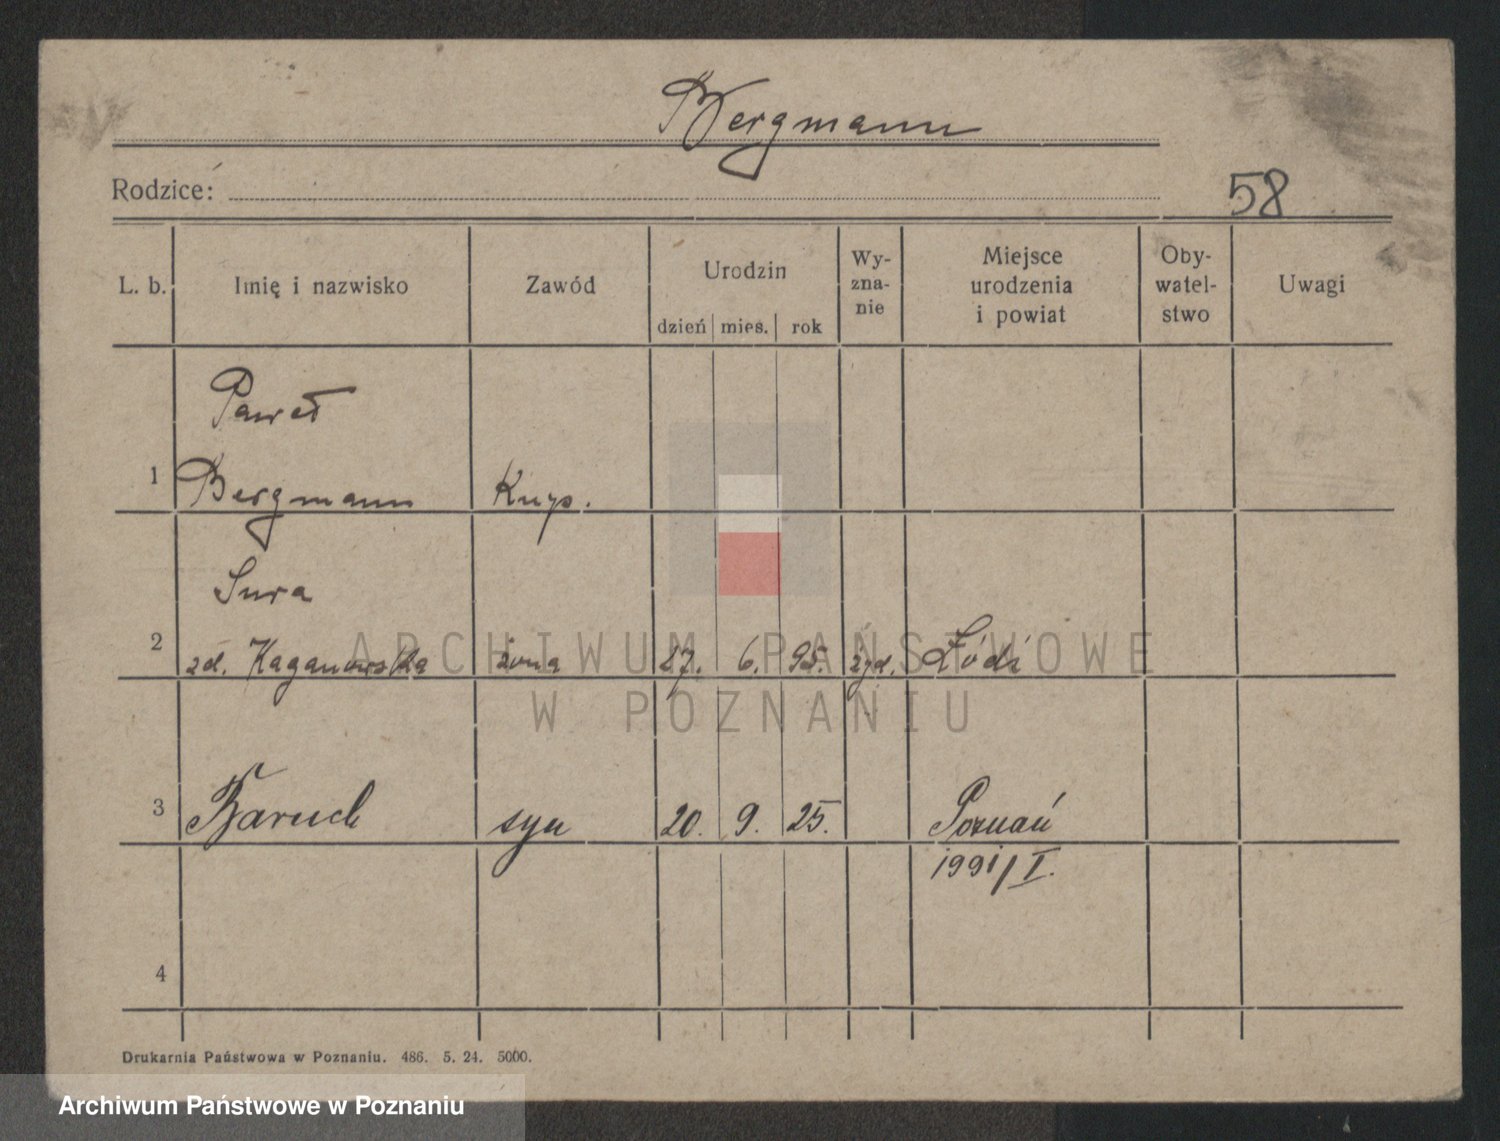 Bergmann
Rodzice:
58
L. b. Imię i nazwisko Zawód Urodzin dzień mies. rok Wy-zna-nie Miejsce urodzenia i powiat Oby-watel-stwo Uwagi
Paweł
1 Bergmann Kup.
Sura
2 zd. Kaganowska żona 27. 6. 95. żyd. Łódź
3 Baruch syn 20. 9. 25. Poznań
1991/I.
4
Drukarnia Państwowa w Poznaniu. 486. 5. 24. 5000.
ARCHIWUM PAŃSTWOWE
W POZNANIU
Archiwum Państwowe w Poznaniu